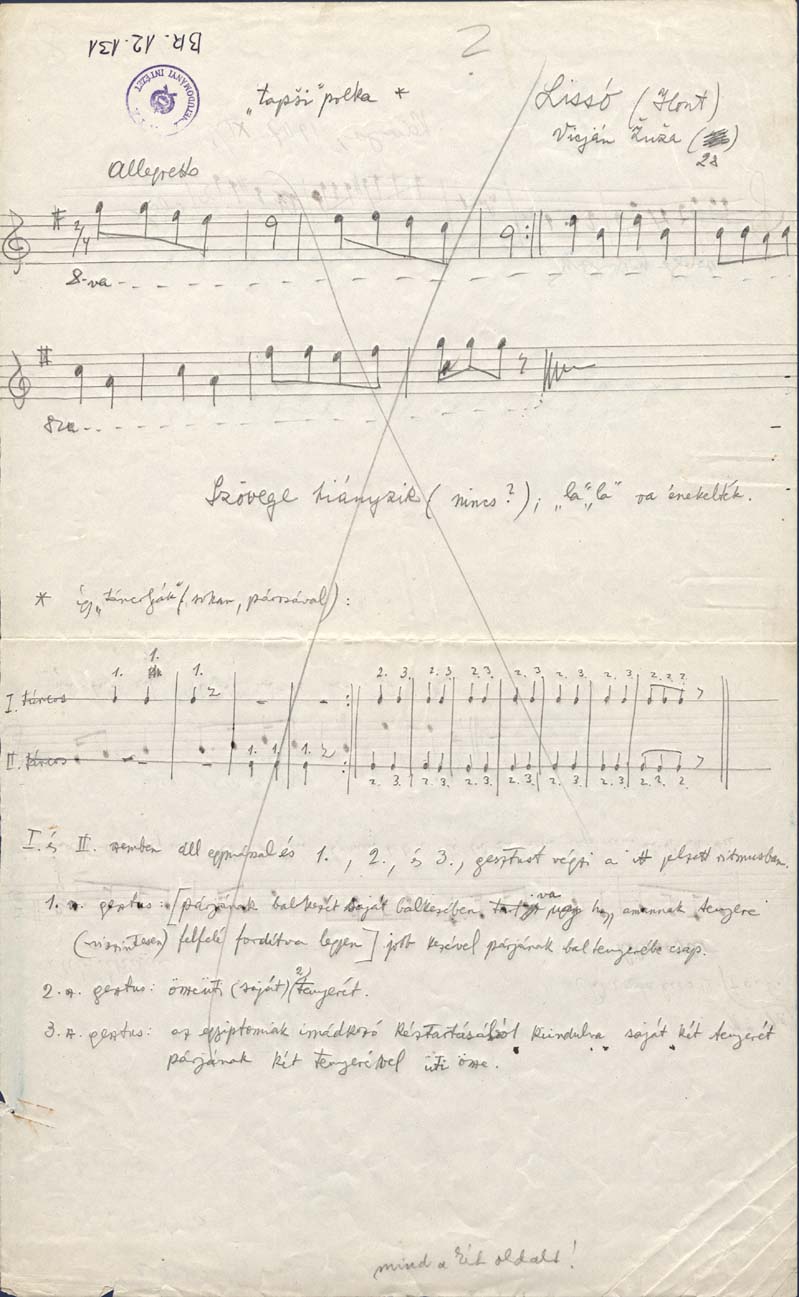 BR. 12.131
2
"tapsi" polka *
Lissó (Hont)
Vicján Zuza
28
Allegretto
2/4
8-va
8va
Szövege hiányzik (nincs?); "la", "la" ra énekelték.
* így "táncolják" (sokan, párosával):
1. 1. 1. 2. 3. 2. 3. 2. 3. 2. 3. 2. 3. 2. 3. 2. 2. 2.
I. táncos
II. táncos
1. 1. 1. 2. 3. 2. 3. 2. 3. 2. 3. 2. 3. 2. 3. 2. 2. 2.
I. és II. szemben áll egymással és 1., 2., és 3., gesztust végzi a itt jelzett ritmusban.
1. sz. gesztus: [párjának balkezét saját balkezében tartva úgy hogy annak tenyere
(vízszintesen) felfelé fordítva legyen] jobb kezével párjának bal tenyerébe csap.
2. sz. gesztus: összeüti (saját) 2 tenyerét.
3. sz. gesztus: az egyiptomiak imádkozó kéztartásából kiindulva saját két tenyerét
párjának két tenyerével üti össze.
mind a két oldalt!